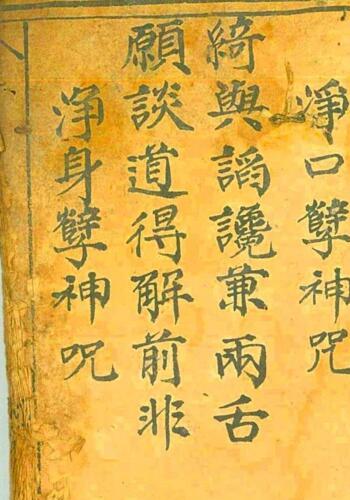 淨口孽神咒
綺與謟讒兼兩舌
願談道得解前非
淨身孽神呪